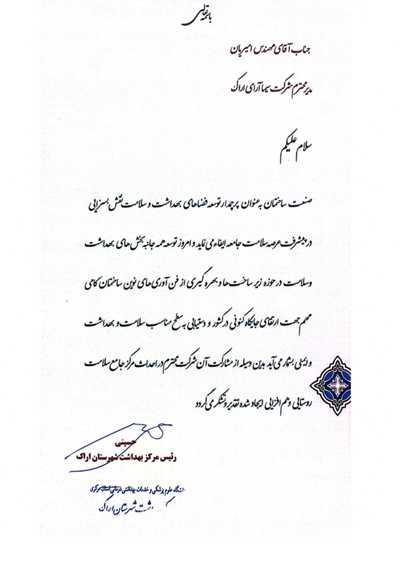 باسمه تعالی
جناب آقای مهندس امیریان
مدیر محترم شرکت سیما آرای اراک
سلام علیکم
صنعت ساختمان به عنوان پرچمدار توسعه فضاهای بهداشت و سلامت نقش بسزایی
در پیشرفت عرصه سلامت جامعه ایفاء می نماید و امروز توسعه همه جانبه بخش های بهداشت
و سلامت در حوزه زیر ساخت ها و بهره گیری از فن آوری های نوین ساختمان گامی
مهم جهت ارتقای جایگاه کنونی در کشور و دستیابی به سطح مناسب سلامت و بهداشت
و ایمنی بشمار می آید بدین وسیله از مشارکت آن شرکت محترم در احداث مرکز جامع سلامت
روستایی و هم افزایی ایجاد شده تقدیر و تشکر می گردد
حسینی
رئیس مرکز بهداشت شهرستان اراک
دانشگاه علوم پزشکی و خدمات بهداشتی درمانی استان مرکزی
شهرستان اراک